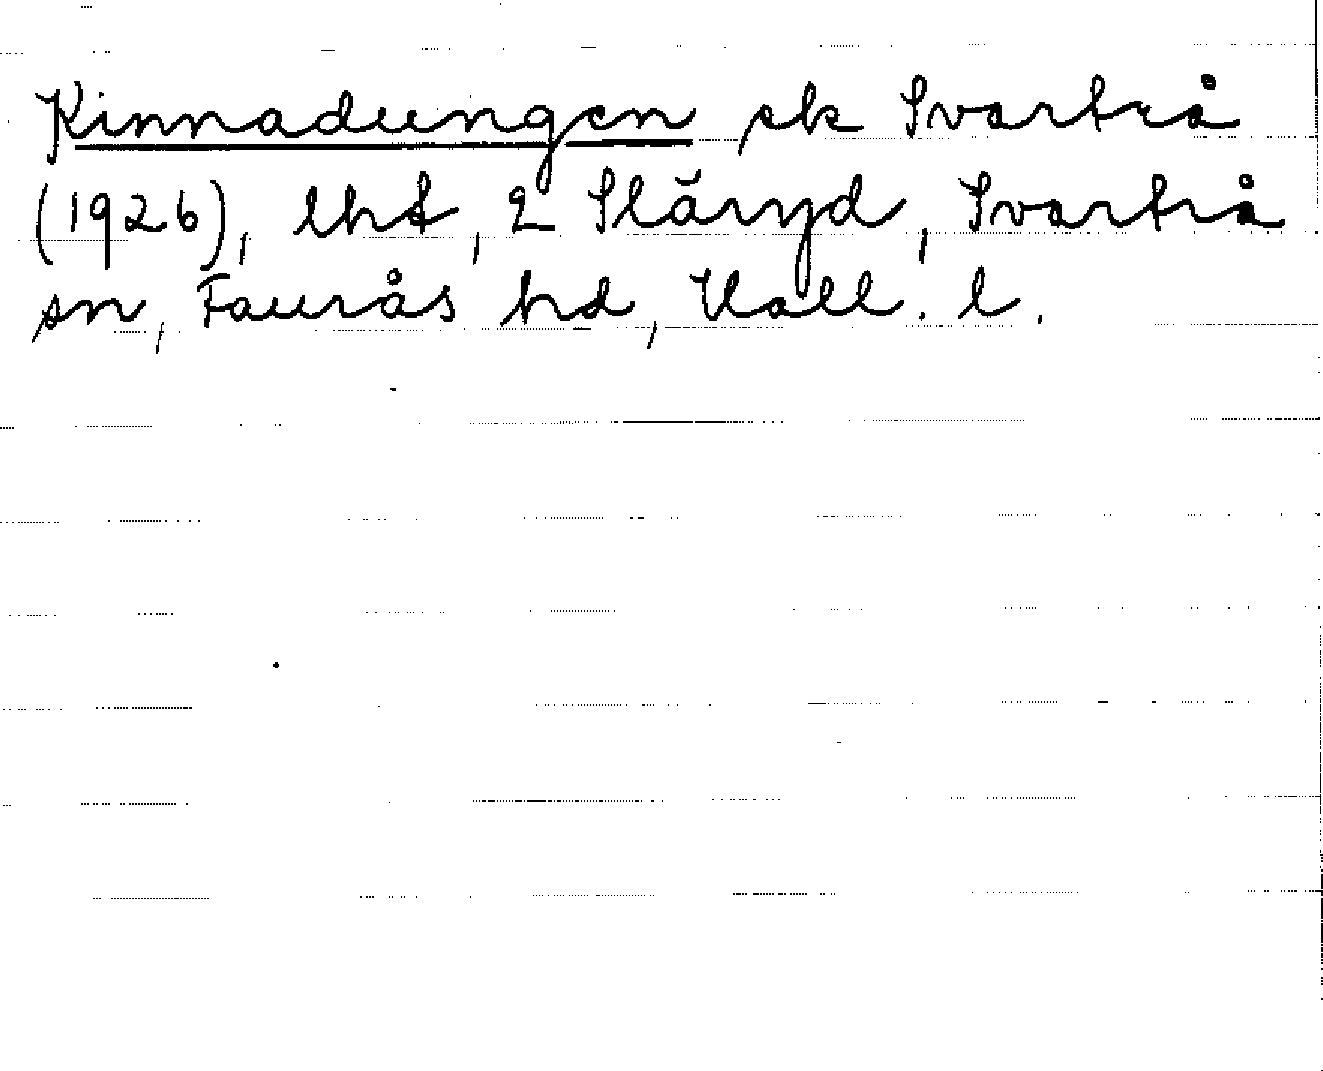 Kinnadungen sk Svartrå
(1926), lht, 2 Släryd, Svartrå
sn, Faurås hd, Hall. l.